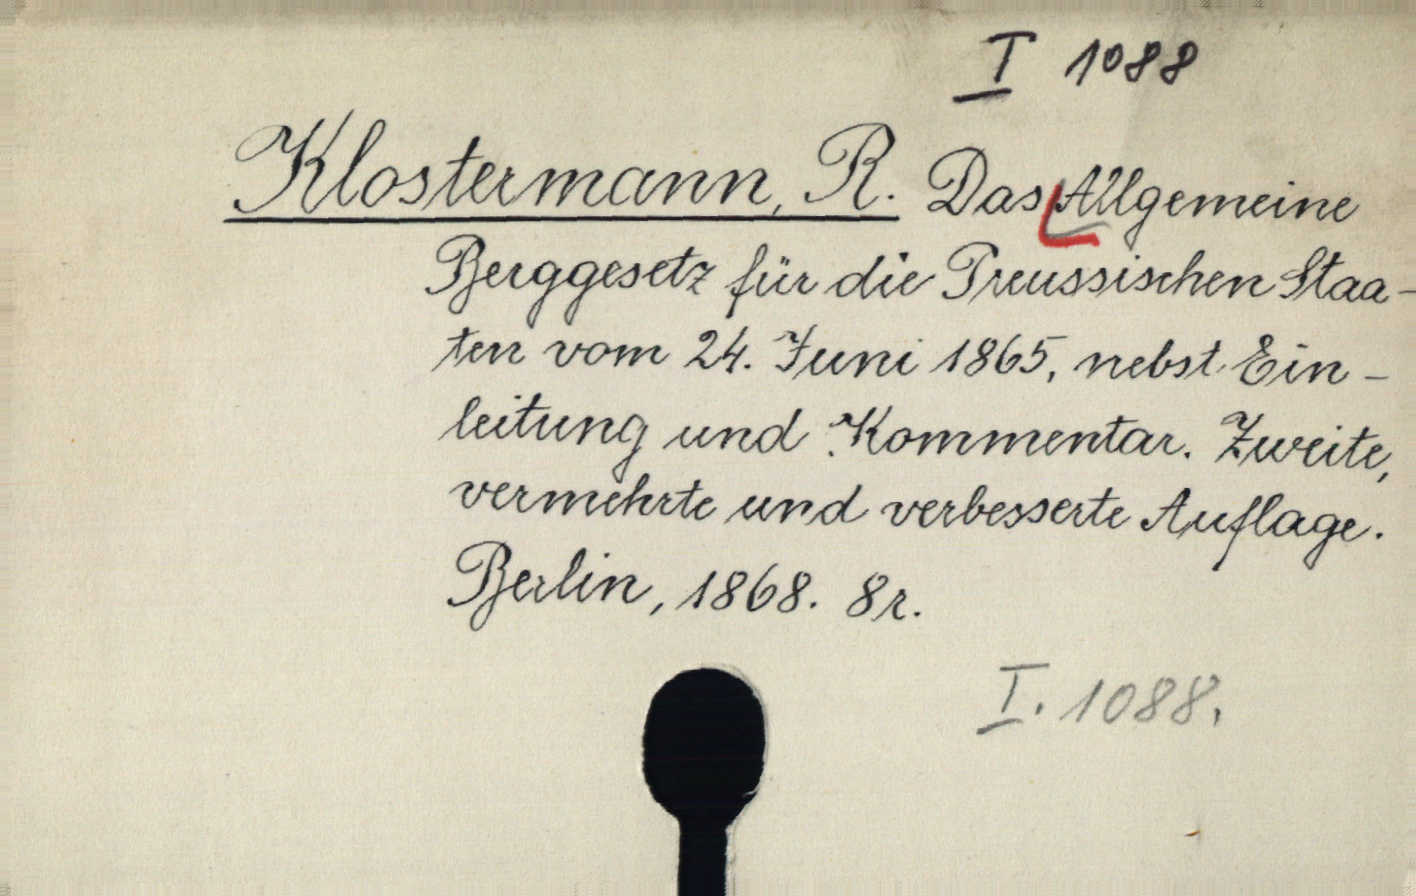 I 1088
Klostermann, R. Das Allgemeine
Berggesetz für die Preussischen Staa-
ten vom 24. Juni 1865, nebst Ein-
leitung und Kommentar. Zweite,
vermehrte und verbesserte Auflage.
Berlin, 1868. 8r.
I. 1088.